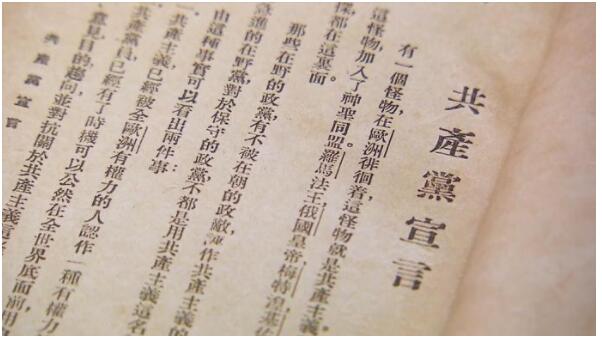 共產黨宣言
有一個怪物,在歐洲徘徊着,這怪物就是共產主義。
這怪物,加入了神聖同盟。羅馬法王,俄國皇帝,梅特湼,基佐
樣,都在這裏面。
那些在野的政黨,有不被在朝的政敵,誣作共產主義的
急進的在野黨,對於保守的政黨,不都是用共產主義這名
由這種事實可以看出兩件事:
一、共產主義,已經被全歐洲有權力的人認作一種有權力
共產黨員,已經有了時機可以公然在全世界底面前,用
意見,目的,趨向,並對抗關於共產主義這
共產黨宣言